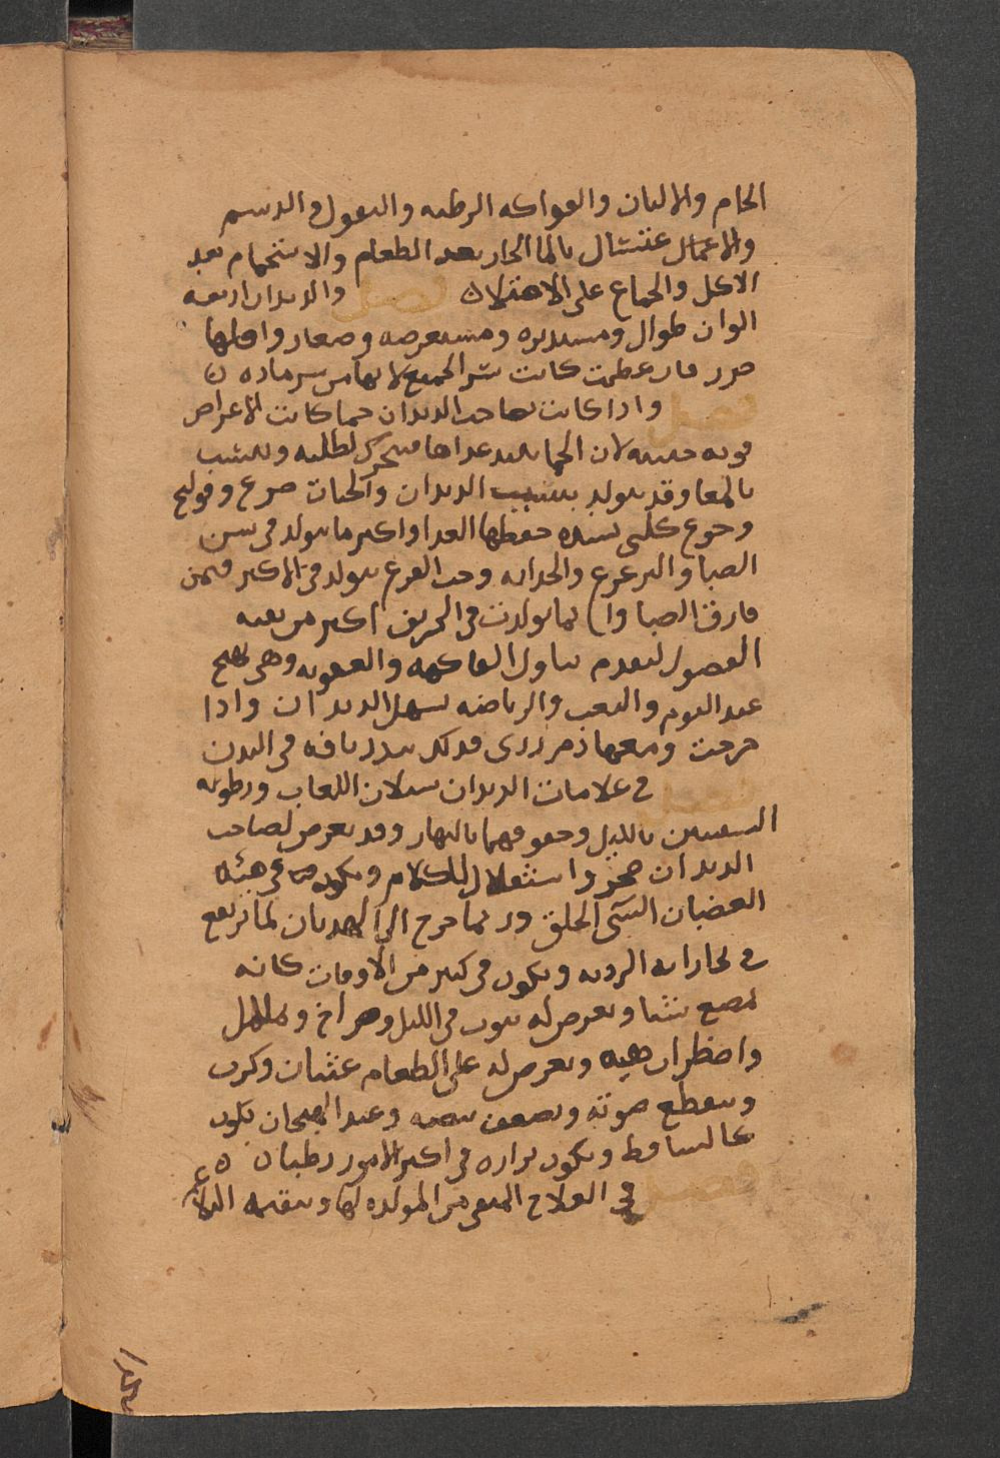 الخام والالبان والفواكه الرطبه والبقول والدسم
والاغتسال بالما الحار بعد الطعام والاستحمام بعد
الاكل والجماع على الامتلاء فصل والديدان اربعه
الوان طوال ومستديره ومستعرضه وصغار واقلها
ضرر فان عظمت كانت شر الجميع لانها من شر ماده
فصل واذا كانت بصاحب الديدان حما كانت الاعراض
قويه خبيثه لان الحما تفسد غداها فتتحرك لطلبه وتتشبث
بالمعا وقد يتولد بسبب الديدان والحيات صرع وقولنج
وجوع كلبى لشده خطفها الغدا واكثر ما تتولد فى سن
الصبا والترعرع والحداثه وحب القرع يتولد فى الاكثر فيمن
فارق الصبا وانما تولدت فى الخريف اكثر من بقيه
الفصول لتقدم تناول الفاكهه والعفونه وهى تهيج
عند النوم والتعب والرياضه تسهل الديدان واذا
خرجت ومعها دم ردى فذلك ينذر بافه فى البدن
فصل فى علامات الديدان سيلان اللعاب ورطوبه
الشفتين بالليل وجفوفهما بالنهار وقد يعرض لصاحب
الديدان ضجر واستثقال للكلام ويكون فى هيئه
الغضبان السىء الخلق وربما خرج الى الهذيان لما يرتفع
من بخاراته الرديه ويكون فى كثير من الاوقات كانه
يمضغ شيا ويعرض له تثوب فى الليل وصراخ وتململ
واضطراب هيئه ويعرض له على الطعام غثيان وكرب
وينقطع صوته ويضعف نبضه وعند الهيجان يكون
كالساقط ويكون برازه فى اكثر الامور رطبا
فصل فى العلاج المنع من المولده لها وتنقيه البلاغم